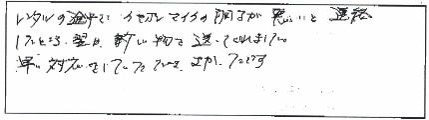 レンタルの途中で イヤホンマイクの調子が 悪いと 連絡
したところ、翌日、新しい物を 送ってくれました。
早い対応をしていただいて、よかったです